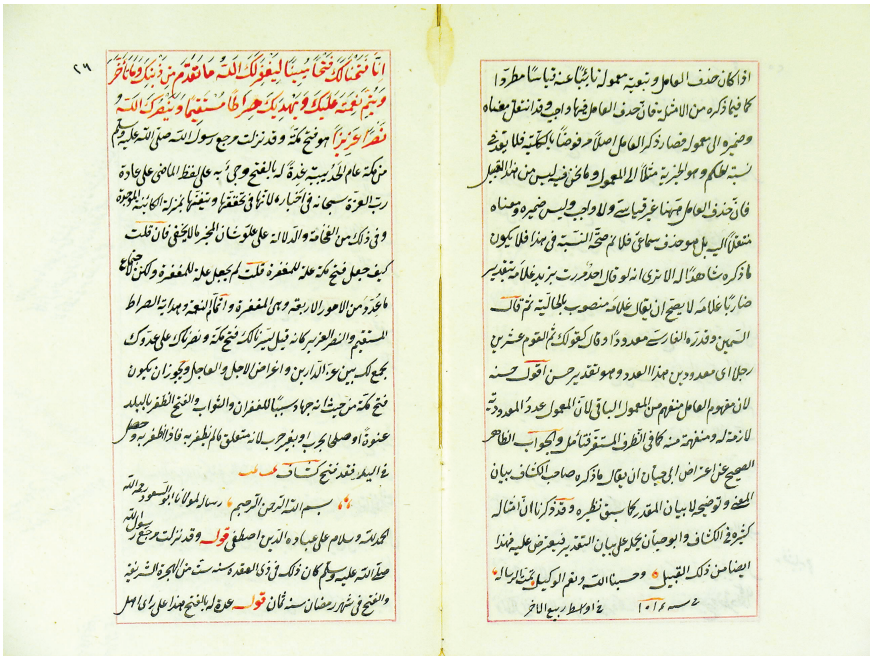 اذا كان حذف العامل وتبعية معموله نائبا عنه قياسا مطردا
كما فيما ذكره من الامثلة فان حذف العامل فيها واجب وقد انتقل معناه
وضميره الى معموله فصار ذكر العامل اصلا مرفوضا بالكلية فلا بعد في
نسبة الحكم وهو الخبرية مثلا الى المعمول وما نحن فيه ليس من هذا القبيل
فان حذف العامل ههنا غير قياسي ولا واجب وليس ضميره ومعناه
منتقلا اليه بل هو حذف سماعي فلا تم صحة النسبة في هذا فلا يكون
ما ذكره شاهدا له الا ترى انه لو قال احد مررت بزيد غلامه بتقدير
ضاربا غلامه لا يصح ان يقال غلامه منصوب بالحالية ثم قال
السمين وقدره الفارسي معدودا وقال كقولك تم القوم عشرين
رجلا اى معدودين بهذا العدد وهو تقدير حسن اقول حسنه
لان مفهوم العامل منفهم من المعمول الباقى لان المعمول عدد المعدودية
لازمة له ومنفهمة منه كما فى الظرف المستقر فتأمل والجواب الظاهر
الصحيح عن اعتراض ابى حيان ان يقال ما ذكره صاحب الكشاف بيان
المعنى وتوضيحه لا بيان المقدر كما سبق نظيره وقد ذكرنا ان امثاله
كثيرة فى الكشاف وابو حيان يحمله على بيان التقدير فيعترض عليه فهذا
ايضا من ذلك القبيل وحسبنا الله ونعم الوكيل تمت الرسالة
فى اواسط ربيع الاخر
٢٦
انا فتحنا لك فتحا مبينا ليغفر لك الله ما تقدم من ذنبك وما تأخر
ويتم نعمته عليك ويهديك صراطا مستقيما وينصرك الله
نصرا عزيزا هو فتح مكة وقد نزلت مرجع رسول الله صلى الله عليه وسلم
من مكة عام الحديبية عدة له بالفتح وجئ به على لفظ الماضى على عادة
رب العزة سبحانه فى اخباره لانها فى تحققها وتيقنها بمنزلة الكائنة الموجودة
وفى ذلك من الفخامة والدلالة على علو شان المخبر ما لا يخفى فان قلت
كيف جعل فتح مكة علة للمغفرة قلت لم يجعل علة للمغفرة ولكن لاجتماع
ما عدد من الامور الاربعة وهى المغفرة واتمام النعمة وهداية الصراط
المستقيم والنصر العزيز كانه قيل يسرنا لك فتح مكة ونصرناك على عدوك
لنجمع لك بين عز الدارين واغراض الاجل والعاجل ويجوز ان يكون
فتح مكة من حيث انه جهاد سببا للغفران والثواب والفتح الظفر بالبلد
عنوة او صلحا بحرب او بغير حرب لانه منغلق ما لم يظفر به فاذا ظفر به وحصل
فى اليد فقد فتح كشاف
بسم الله الرحمن الرحيم رسالة لمولانا ابو السعود رحمه الله
الحمد لله وسلام على عباده الذين اصطفى قوله وقد نزلت مرجع رسول الله
صلى الله عليه وسلم كان ذلك فى ذى القعدة سنة ست من الهجرة الشريفة
والفتح فى شهر رمضان سنة ثمان قوله عدة له بالفتح هذا على راى اهل